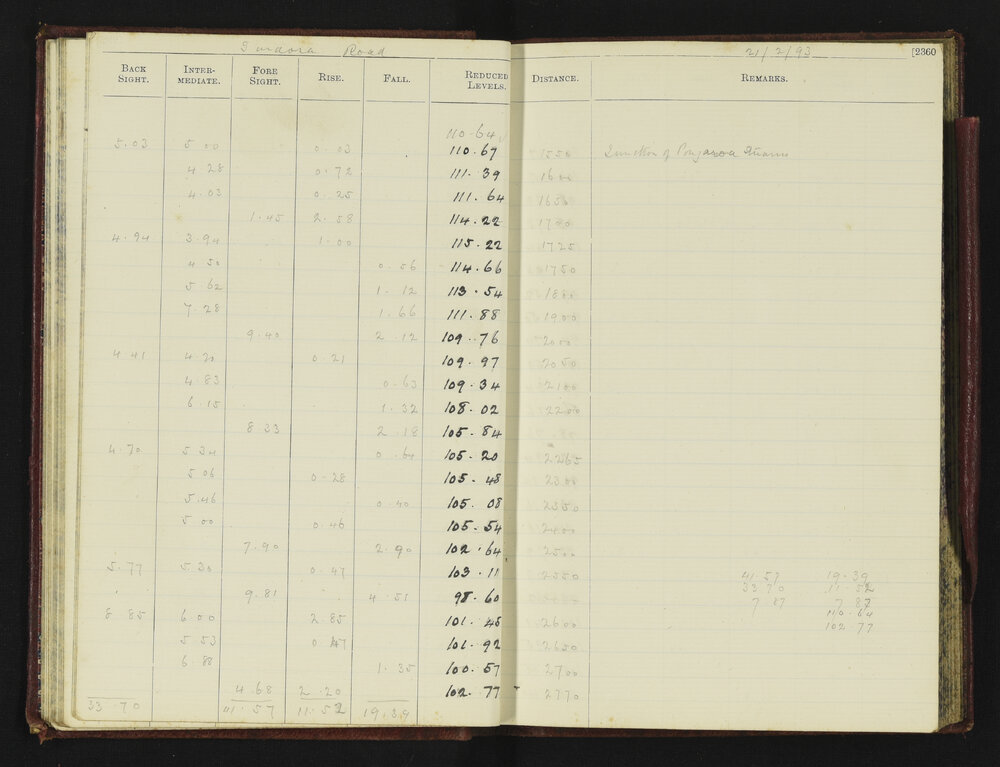 Road 21/2/93 [2360
BACK SIGHT. INTER-MEDIATE. FORE SIGHT. RISE. FALL. REDUCED LEVELS. DISTANCE. REMARKS.
110.64
5.03 5.00 0.03 110.67 1550 Junction of
4.28 0.72 111.39 1600
4.03 0.25 111.64 1650
1.45 2.58 114.22 1700
4.94 3.94 1.00 115.22 1725
4.50 0.56 114.66 1750
5.62 1.12 113.54 1800
7.28 1.66 111.88 1900
9.40 2.12 109.76 2000
4.41 4.20 0.21 109.97 2050
4.83 0.63 109.34 2100
6.15 1.32 108.02 2200
8.33 2.18 105.84
4.70 5.34 0.64 105.20 2265
5.06 0.28 105.48 2300
5.46 0.40 105.08 2350
5.00 0.46 105.54 2400
7.90 2.90 102.64 2500
5.77 5.30 0.47 103.11 2550 41.57 19.39
33.70 11.52
9.81 4.51 98.60 7.87 7.87
110.64
8.85 6.00 2.85 101.45 2600 102.77
5.53 0.47 101.92 2650
6.88 1.35 100.57 2700
4.68 2.20 102.77 2770
33.70 41.57 11.52 19.39